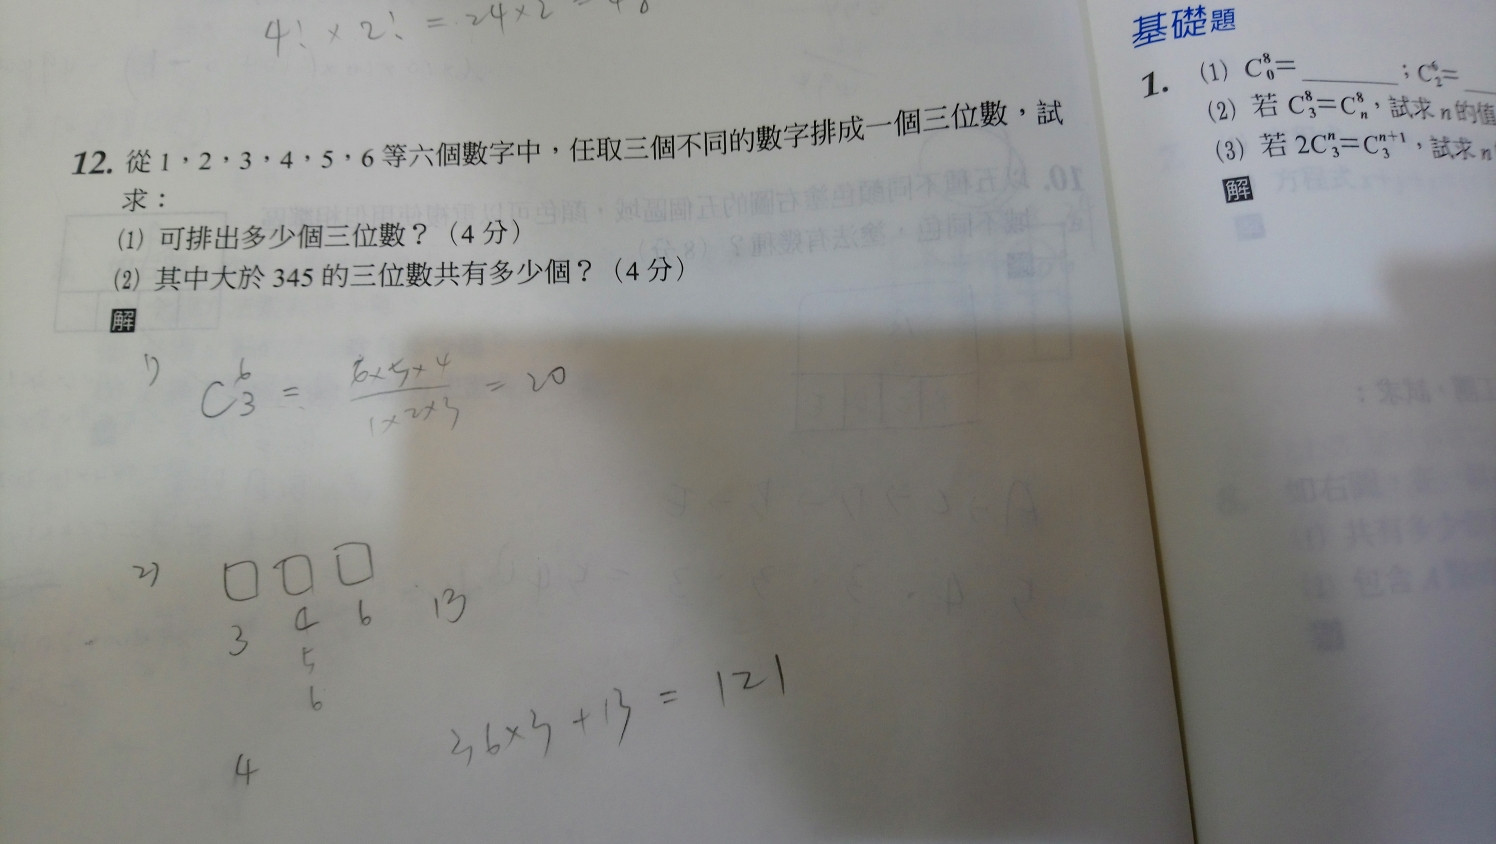 4! × 2! = 24×2 = 48
12. 從 1，2，3，4，5，6 等六個數字中，任取三個不同的數字排成一個三位數，試
求：
(1) 可排出多少個三位數？（4 分）
(2) 其中大於 345 的三位數共有多少個？（4 分）
解
1) C⁶₃ = 6×5×4 / 1×2×3 = 20
2) □ □ □
3 4 6 13
5
6
4
36×3+13 = 121
基礎題
1. (1) C⁸₀= ______ ；C⁶₂=
(2) 若 C⁸₃=C⁸ₙ，試求 n 的值
(3) 若 2Cⁿ₃=Cⁿ⁺¹₃，試求 n
解